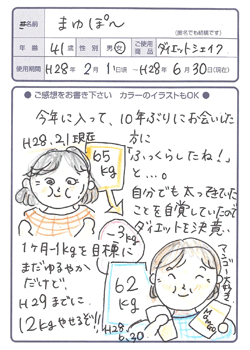 名前 まゅぽ〜ん
(匿名でも結構です)
年齢 41歳 性別 男・女 ご使用商品 ダイエットシェイク
使用期間 H28年2月1日頃〜H28年6月30日(現在)
● ご感想をお書き下さい カラーのイラストもOK ●
今年に入って、10年ぶりにお会いした
方に
「ふっくらしたね!」
と…。
自分でも太ってきていた
ことを自覚していたので
ダイエットを決意。
H28.2.1現在
65kg
-3kg
1ヶ月-1kgを目標に
まだゆるやか
だけど、
H29までに
12kgやせるぞ!!
62kg
H28.6.30
マンゴー大好き